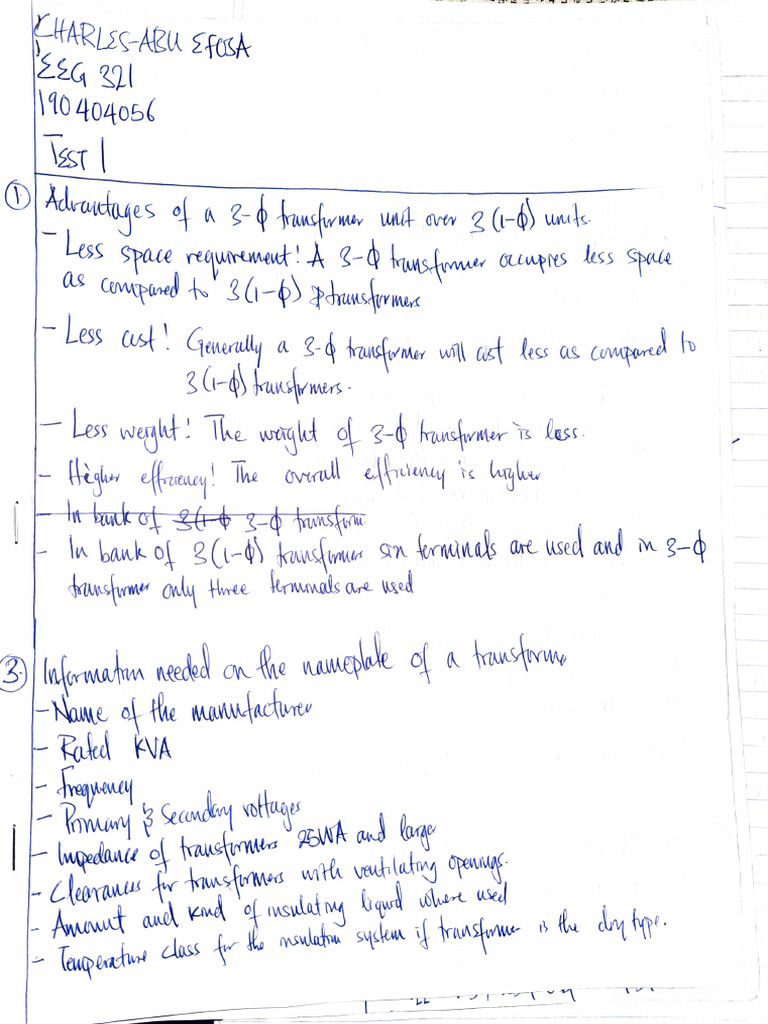 CHARLES-ABU EFOSA
EEG 321
190404056
TEST 1
1. Advantages of a 3-ϕ transformer unit over 3(1-ϕ) units.
- Less space requirement! A 3-ϕ transformer occupies less space
as compared to 3(1-ϕ) transformers
- Less cost! Generally a 3-ϕ transformer will cost less as compared to
3(1-ϕ) transformers.
- Less weight! The weight of 3-ϕ transformer is less.
- Higher efficiency! The overall efficiency is higher
- In bank of 3(1-ϕ 3-ϕ transform
- In bank of 3(1-ϕ) transformer six terminals are used and in 3-ϕ
transformer only three terminals are used
3. Information needed on the nameplate of a transformer
- Name of the manufacturer
- Rated KVA
- Frequency
- Primary & Secondary voltages
- Impedance of transformers 25KVA and larger
- Clearances for transformers with ventilating openings.
- Amount and kind of insulating liquid where used
- Temperature class for the insulation system if transformer is the dry type.